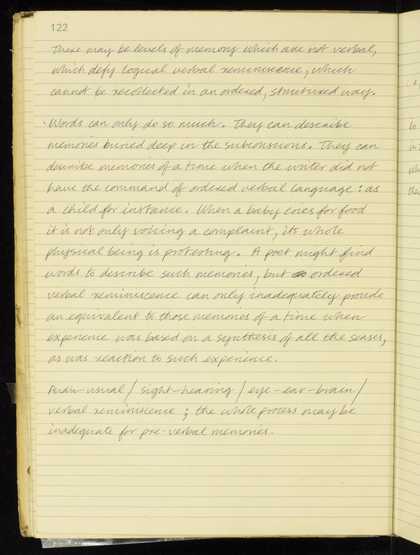 122
There may be levels of memory which are not verbal,
which defy logical verbal reminiscence, which
cannot be recollected in an ordered, structured way.
Words can only do so much. They can describe
memories buried deep in the subconscious. They can
describe memories of a time when the writer did not
have the command of ordered verbal language: as
a child for instance. When a baby cries for food
it is not only voicing a complaint, its whole
physical being is protesting. A poet might find
words to describe such memories, but ordered
verbal reminiscence can only inadequately provide
an equivalent to those memories of a time when
experience was based on a synthesis of all the senses,
as was reaction to such experience.
Audio-visual / sight-hearing / eye-ear-brain /
verbal reminiscence; the whole process may be
inadequate for pre-verbal memories.